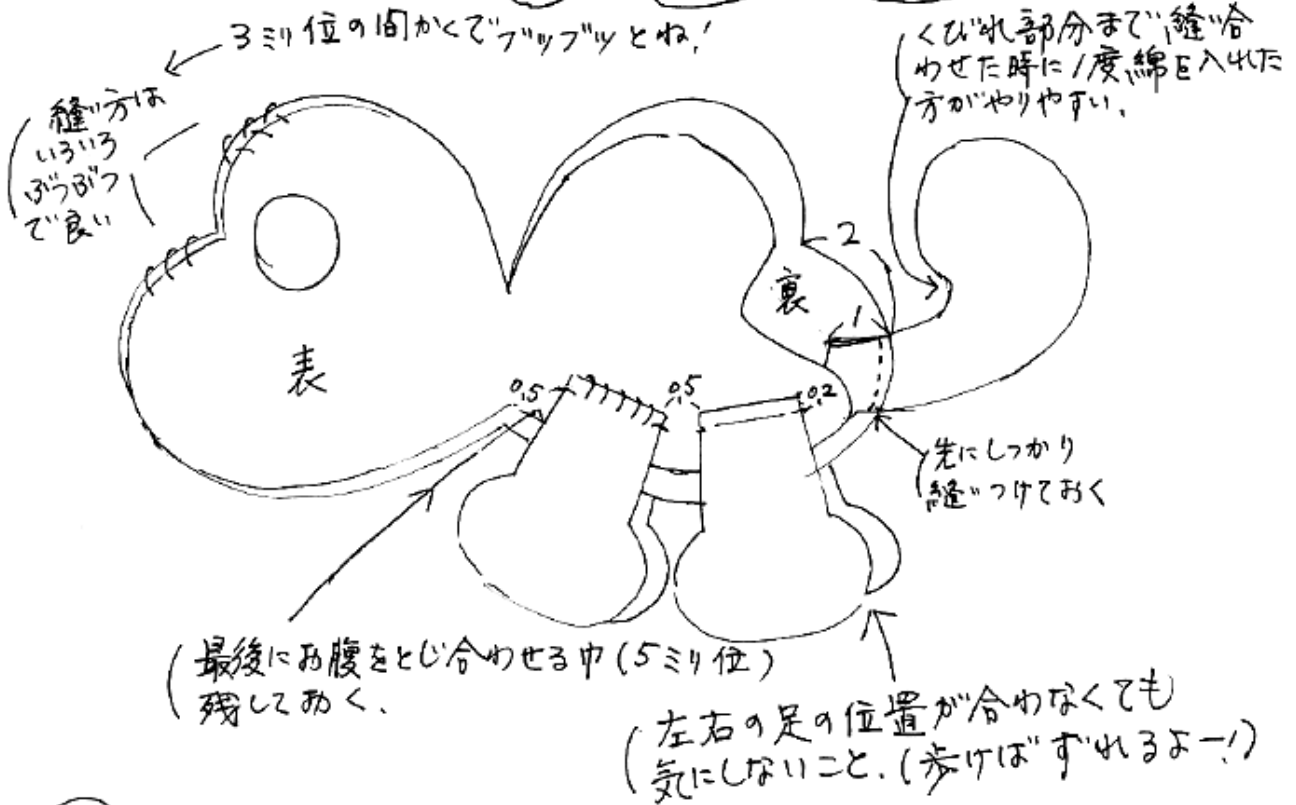 3ミリ位の間かくでブツブツとね!
くびれ部分まで縫い合
わせた時に1度綿を入れた
方がやりやすい.
縫い方は
いろいろ
ぶつぶつ
で良い
2
裏
1
表
0.5
0.5
0.2
先にしっかり
縫いつけておく
最後にお腹をとじ合わせる巾(5ミリ位)
残しておく.
左右の足の位置が合わなくても
気にしないこと.(歩けばずれるよー!)